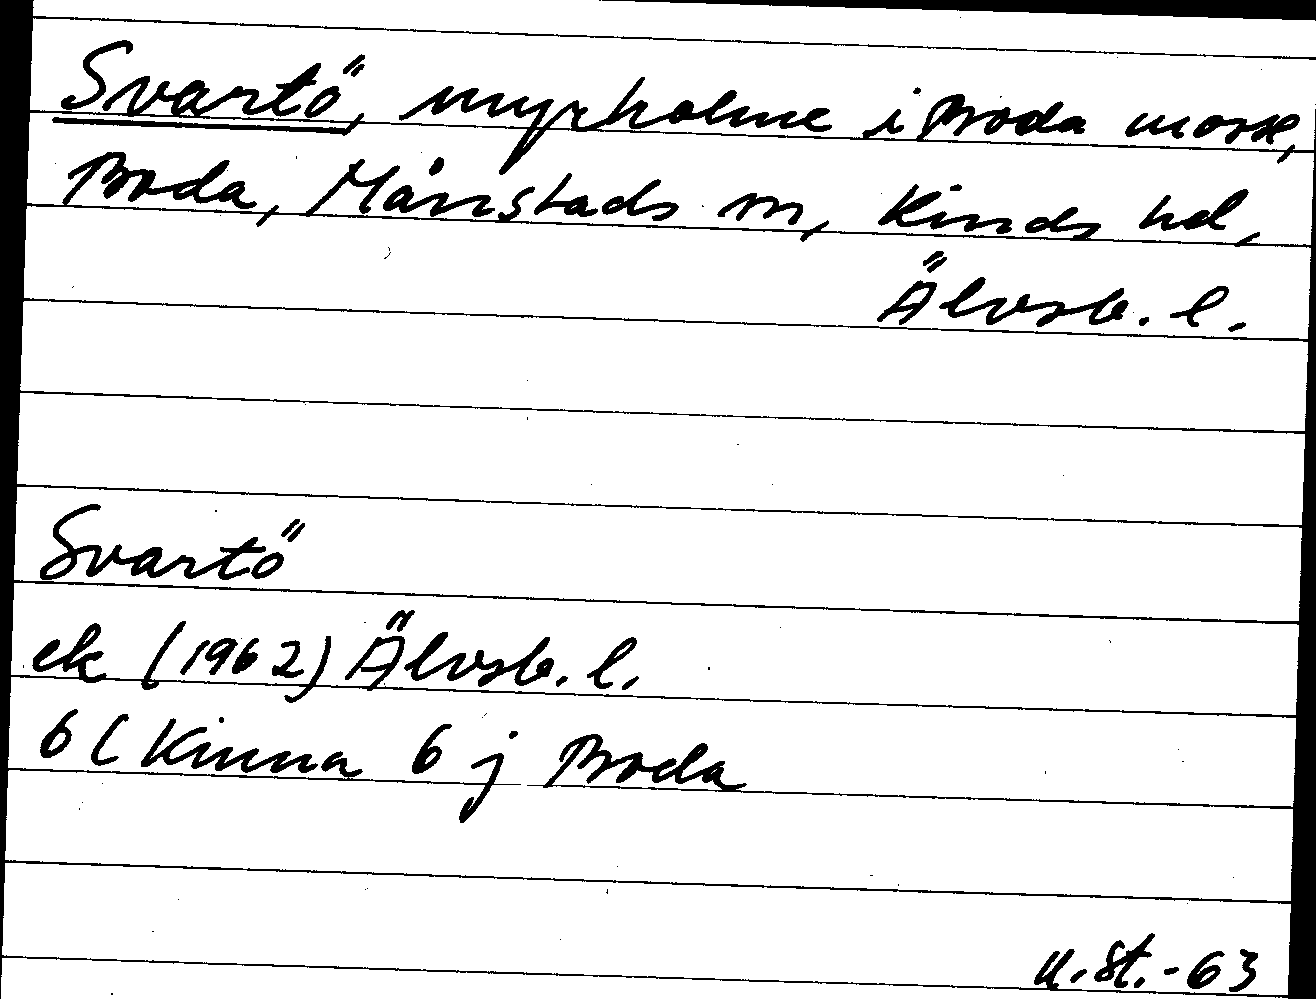 Svartö, myrholme i Boda mosse,
Boda, Månstads sn, Kinds hd,
Älvsb. l.
Svartö
ek (1962) Älvsb. l.
6 C Kinna 6 j Boda
U.St.-63